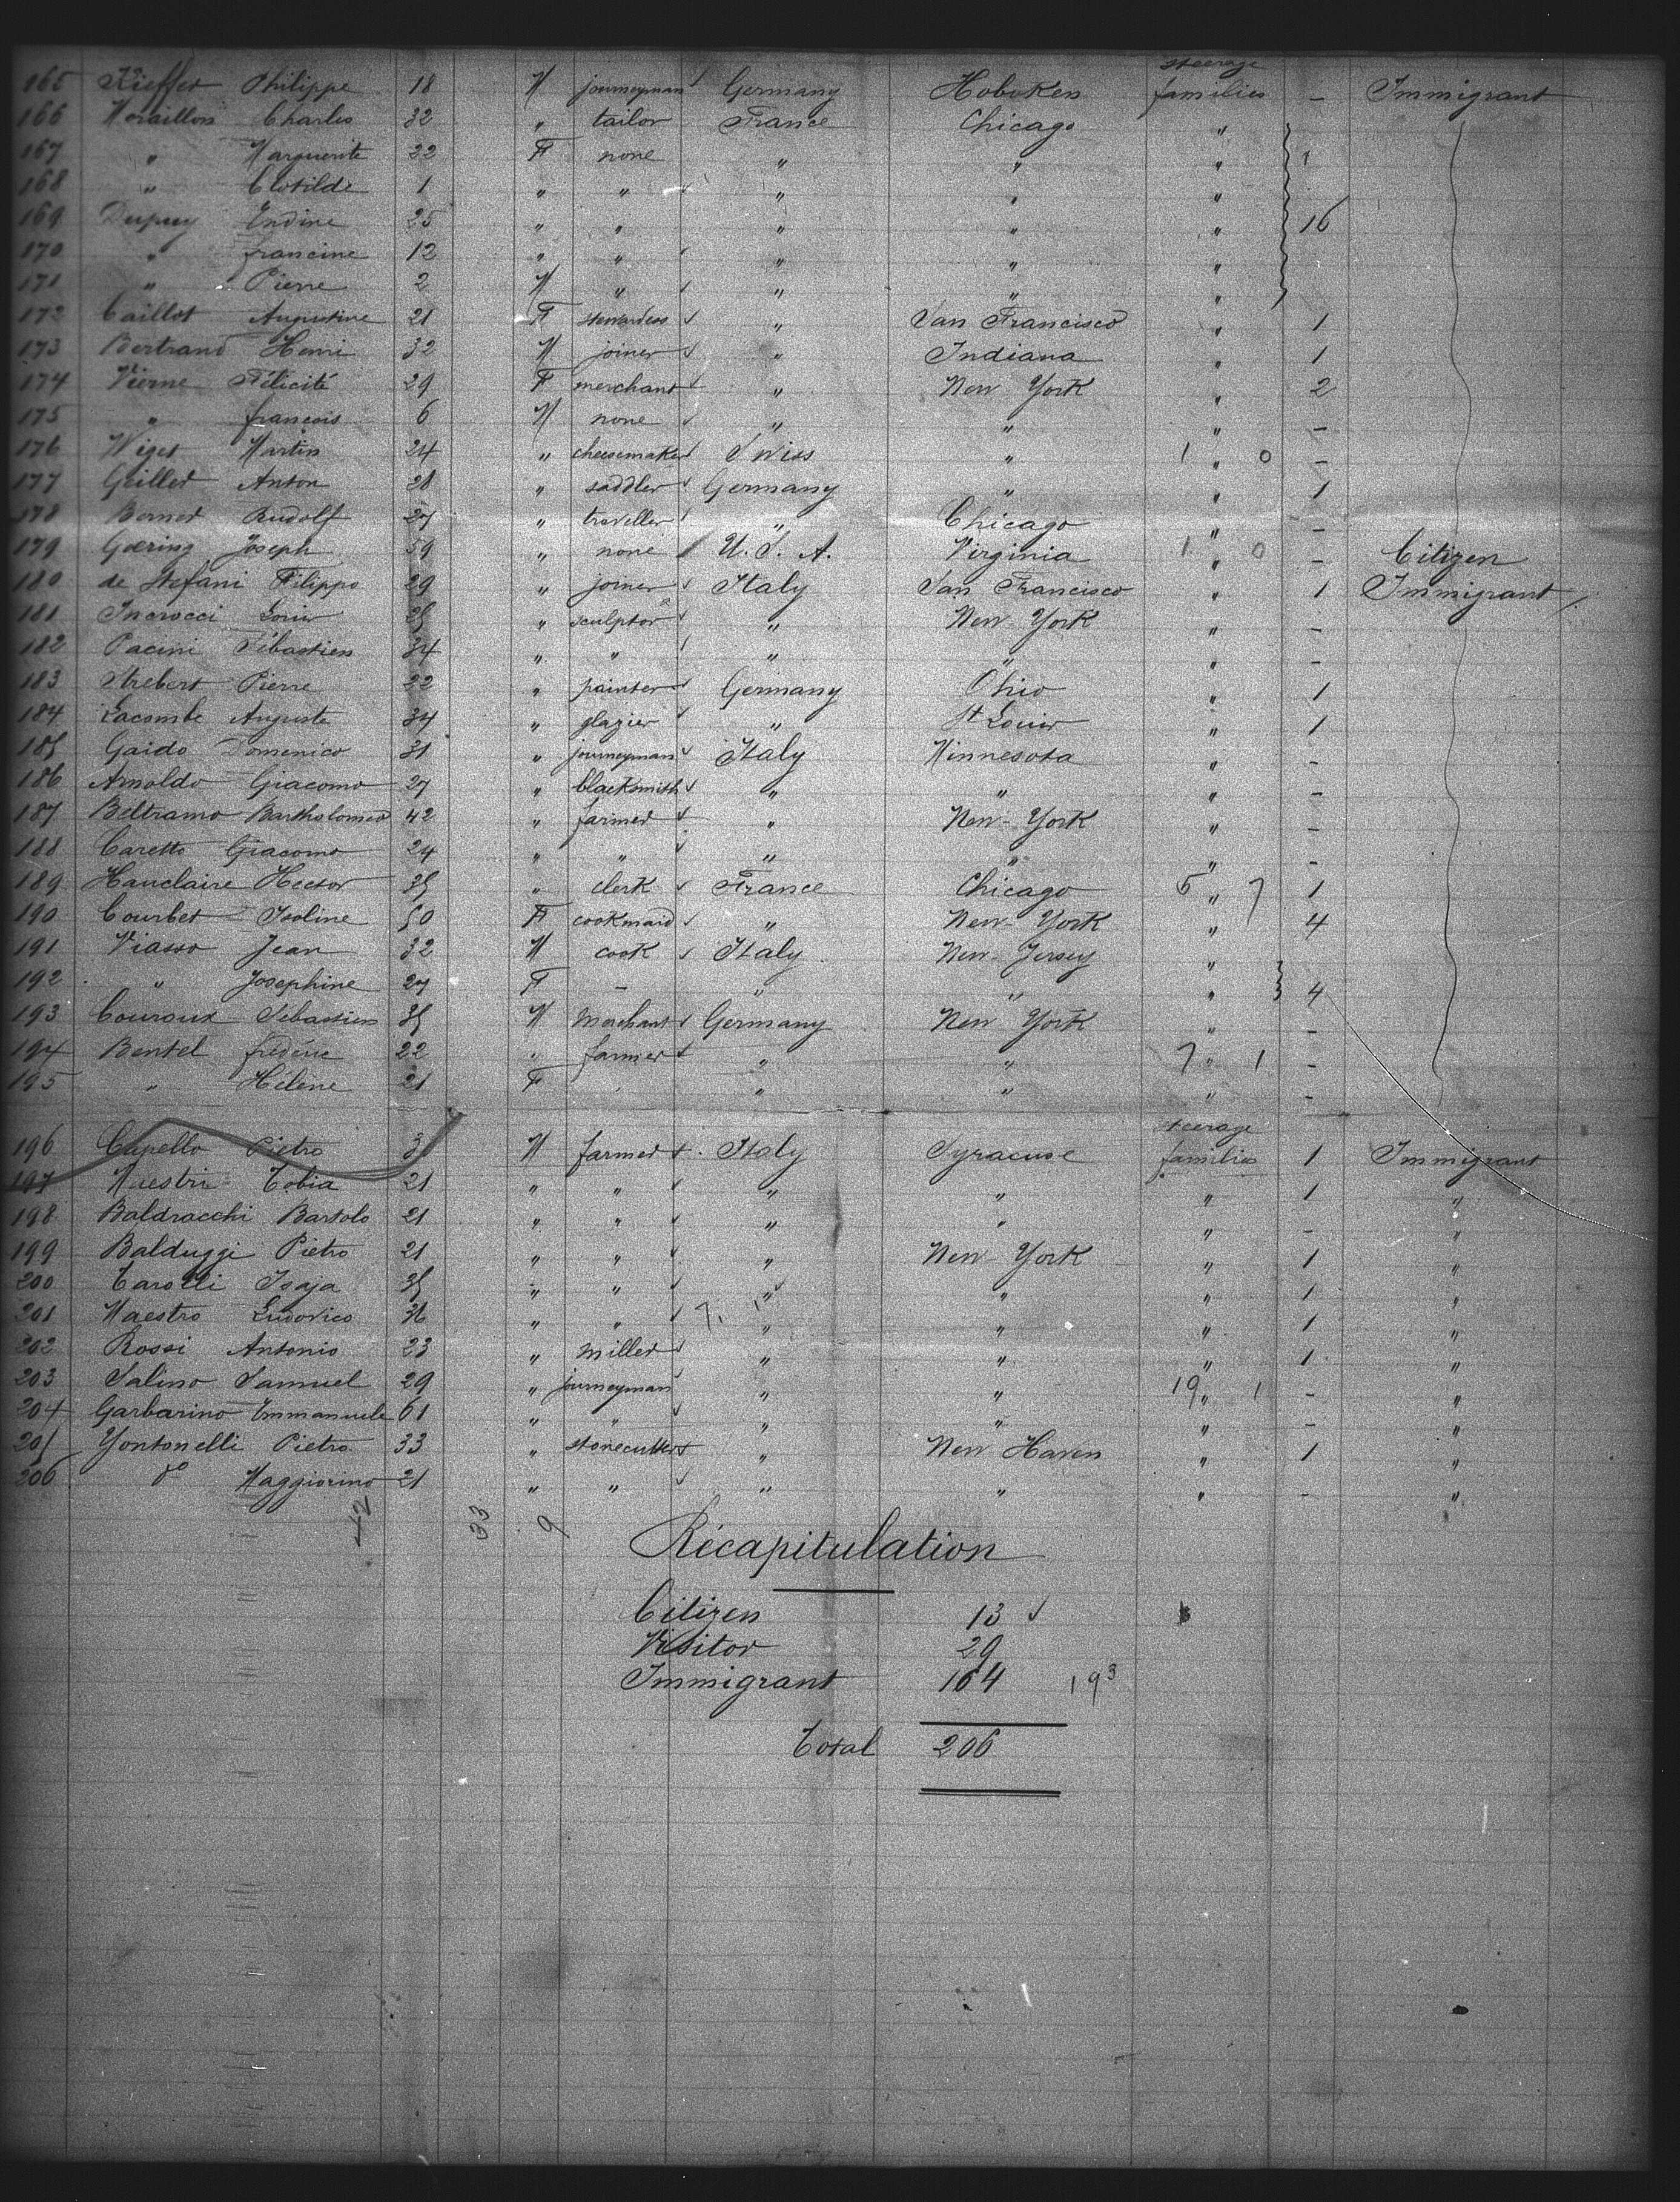 steerage
165 Kieffer Philippe 18 M journeyman Germany Hoboken families - Immigrant
166 Moraillon Charles 32 " tailor France Chicago "
167 " Marguerite 22 F none " " " 1
168 " Clotilde 1 " " " " "
169 Dupuy Endine 25 " " " " " 16
170 " francine 12 " " " " "
171 " Pierre 2 M " " " "
172 Caillot Augustine 21 F stewardess " San Francisco " 1
173 Bertrand Henri 32 M joiner " Indiana " 1
174 Vierne Félicité 29 F merchant " New York " 2
175 " francois 6 M none " " " -
176 Wiget Martin 24 " cheesemaker Swiss " 1 " 0 -
177 Geiller Anton 28 " saddler Germany " " 1
178 Berner Rudolf 27 " traveller " Chicago " -
179 Goering Joseph 59 " none U. S. A. Virginia 1 " 0 - Citizen
180 de Stefani Filippo 29 " joiner Italy San Francisco " 1 Immigrant
181 Incrocci Louis 25 " sculptor " New York " -
182 Pacini Sébastien 34 " " " " " -
183 Strebert Pierre 22 " painter Germany Ohio " 1
184 Lacombe Auguste 34 " glazier " St Louis " 1
185 Gaido Domenico 31 " journeyman Italy Minnesota " -
186 Arnoldo Giacomo 27 " blacksmith " " " -
187 Beltramo Bartholomeo 42 " farmer " New-York " -
188 Caretto Giacomo 24 " " " " " -
189 Hauclaire Hector 35 " clerk France Chicago 5 " 7 1
190 Courbet Isoline 50 F cookmaid " New-York " 4
191 Viasso Jean 32 M cook Italy New-Jersey "
192 " Josephine 27 F - " " " 4
193 Couroux Sébastien 35 M merchant Germany New York " -
194 Bentel frédéric 22 " farmer " " 7 " 1 -
195 " Hélène 21 F " " " -
steerage
196 Capello Pietro 3 M farmer Italy Syracuse families 1 Immigrant
197 Maestri Tobia 21 " " " " " 1 "
198 Baldracchi Bartolo 21 " " " " " - "
199 Balduggi Pietro 21 " " " New York " 1 "
200 Tarolli Isaja 35 " " " " " 1 "
201 Maestro Ludovico 36 " " " " " 1 "
202 Rossi Antonio 23 " miller " " " 1 "
203 Salino Samuel 29 " journeyman " " 19 " 1 - "
204 Garbarino Emmanuele 61 " " " " " - "
205 Yontonelli Pietro 33 " stonecutter " New Haven " 1 "
206 do Maggiorino 21 " " " " " - "
42 33 9
Récapitulation
Citizen 13
Visitor 29
Immigrant 164 193
Total 206